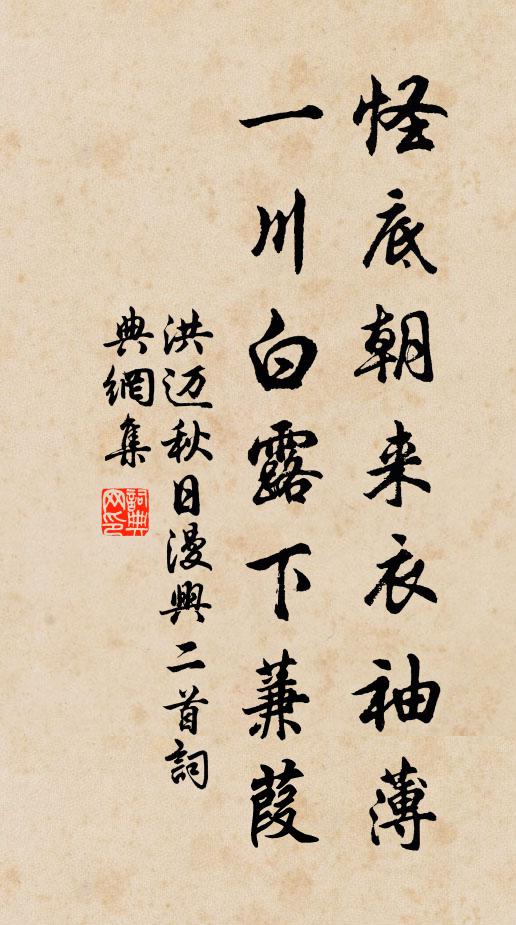 怪底朝来衣袖薄
一川白露下蒹葭
洪迈秋日漫興二首詞
典網集
詞典网印